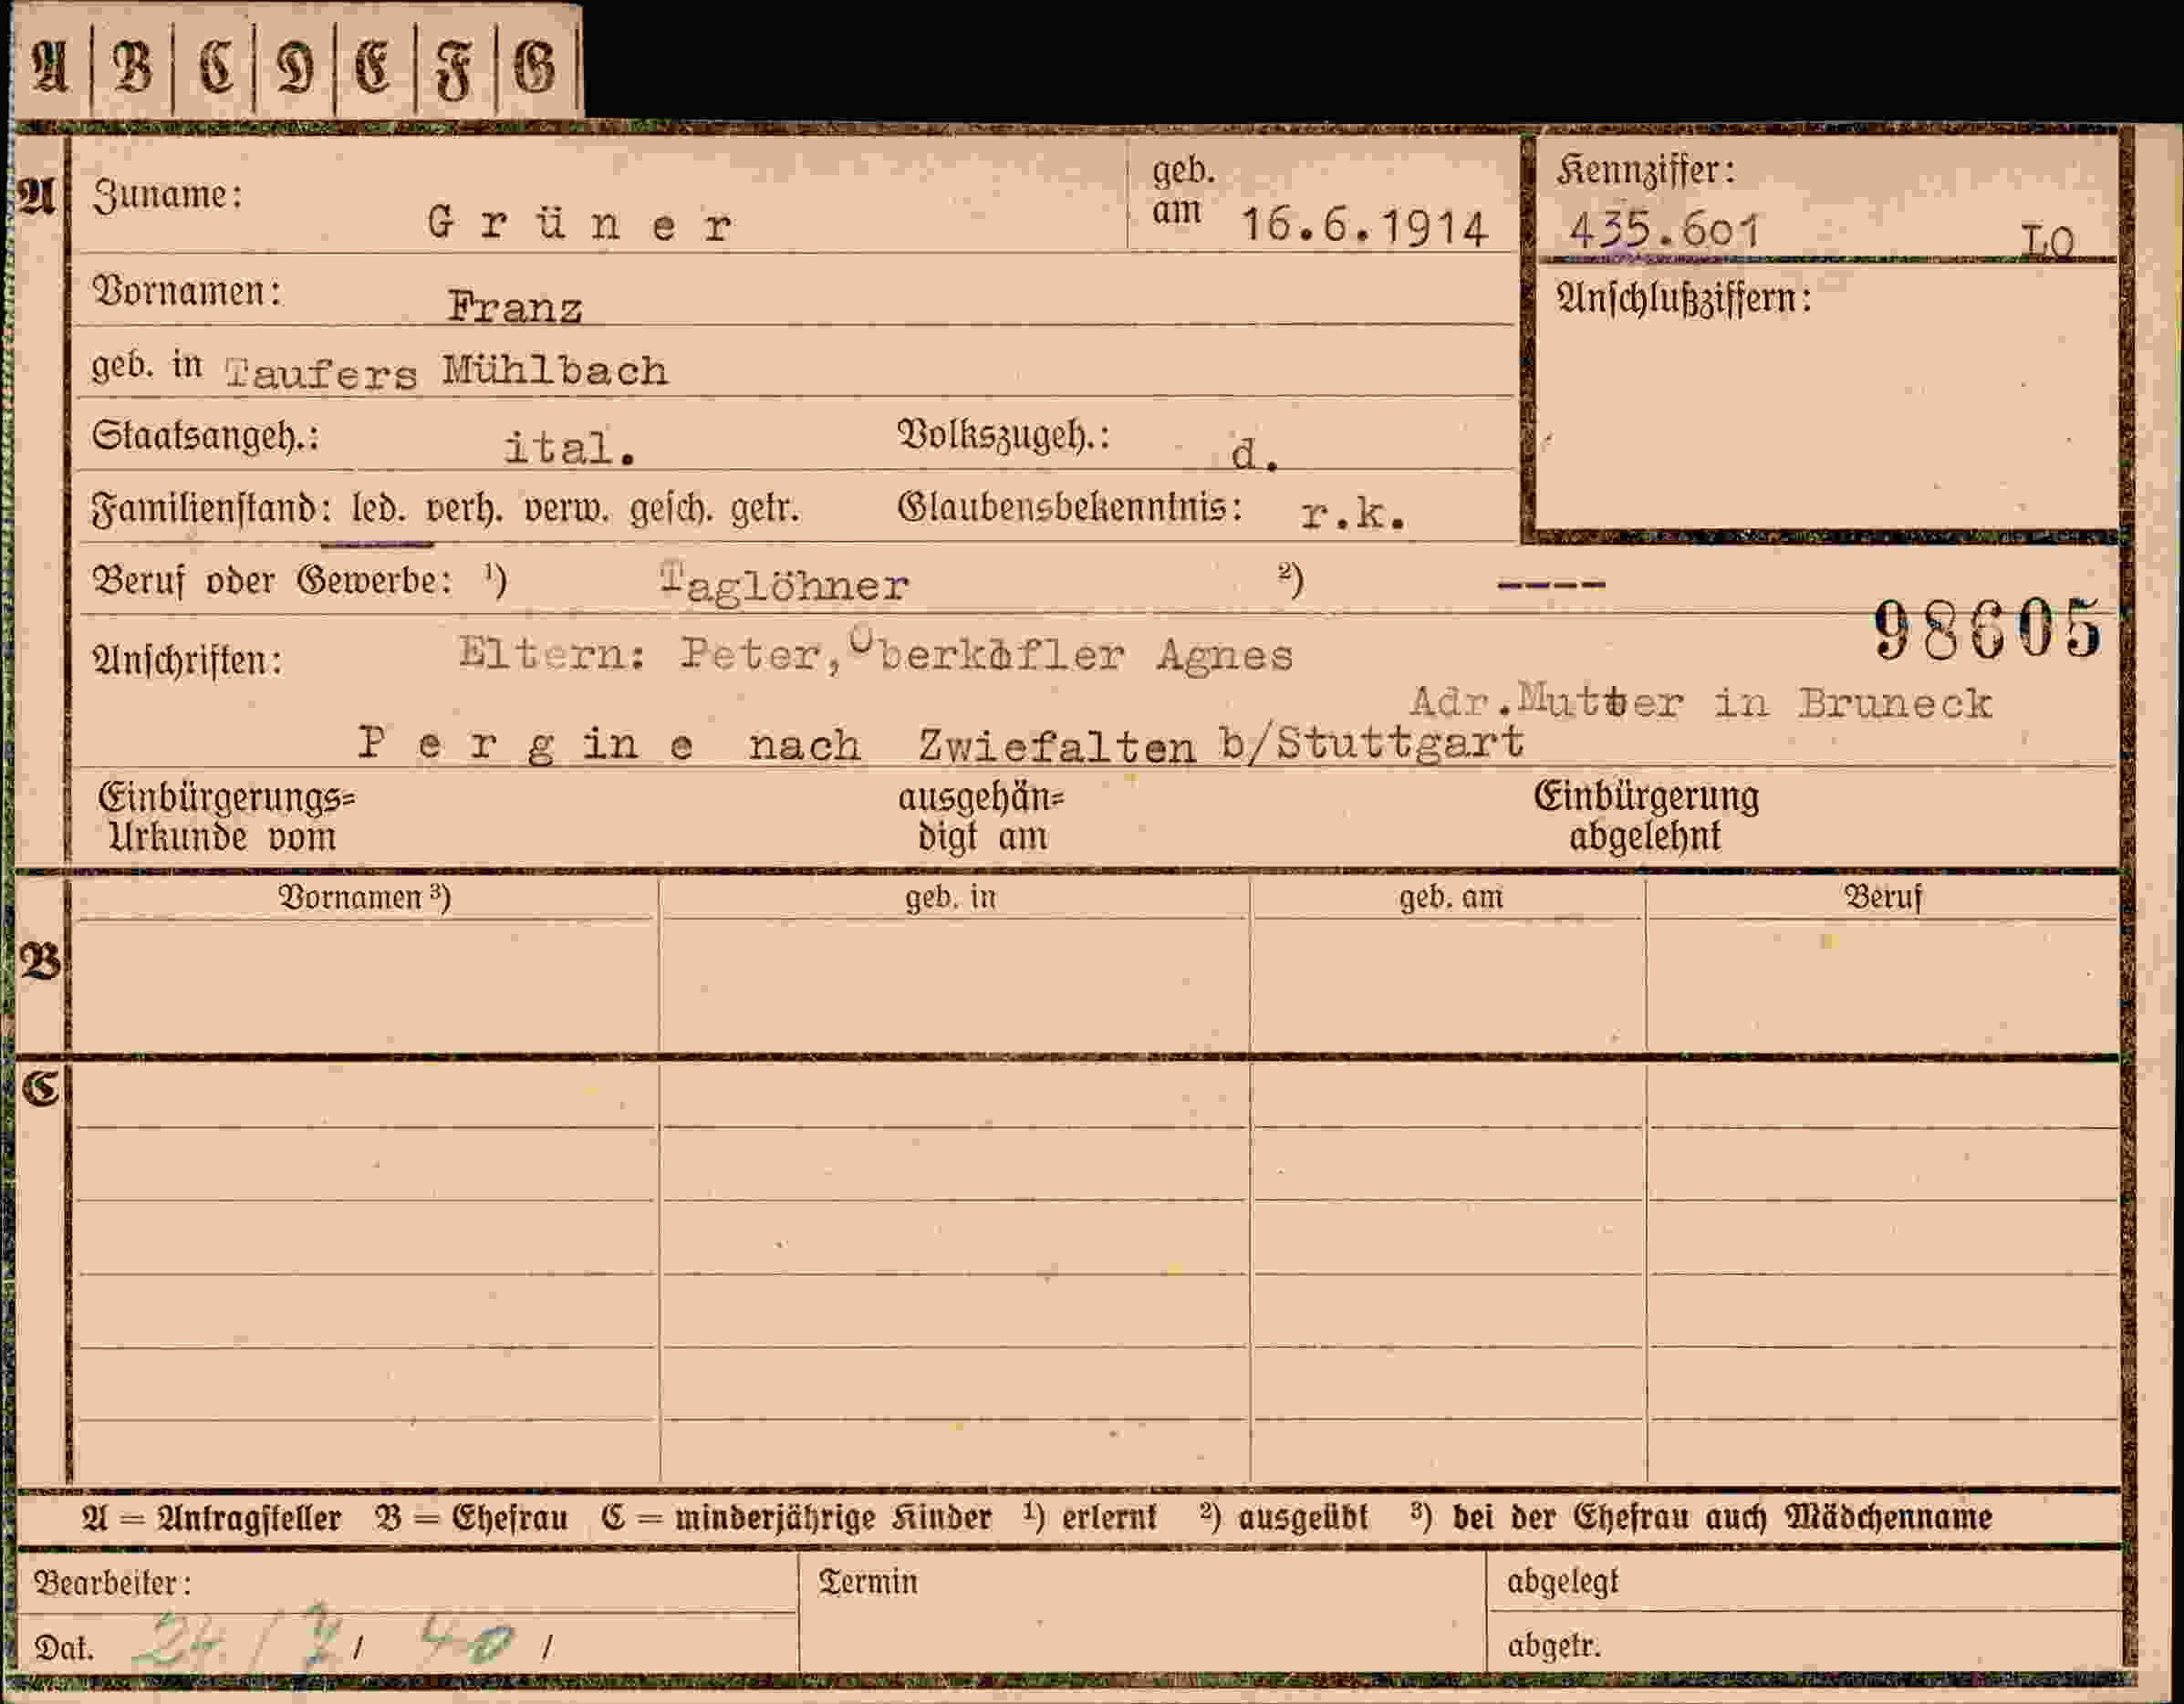 A | B | C | D | E | F | G
A Zuname: G r ü n e r geb. am 16.6.1914
Kennziffer: 435.601 LO
Vornamen: Franz
Anschlußziffern:
geb. in Taufers Mühlbach
Staatsangeh.: ital. Volkszugeh.: d.
Familienstand: led. verh. verw. gesch. getr. Glaubensbekenntnis: r.k.
Beruf oder Gewerbe: ¹) Taglöhner ²) ----
98605
Anschriften: Eltern: Peter, Oberkofler Agnes
Adr.Mutter in Bruneck
P e r g in e nach Zwiefalten b/Stuttgart
Einbürgerungs= ausgehän= Einbürgerung
Urkunde vom digt am abgelehnt
Vornamen ³) geb. in geb. am Beruf
B
C
A = Antragsteller B = Ehefrau C = minderjährige Kinder ¹) erlernt ²) ausgeübt ³) bei der Ehefrau auch Mädchenname
Bearbeiter: Termin abgelegt
Dat. 24 / 7 / 40 / abgetr.